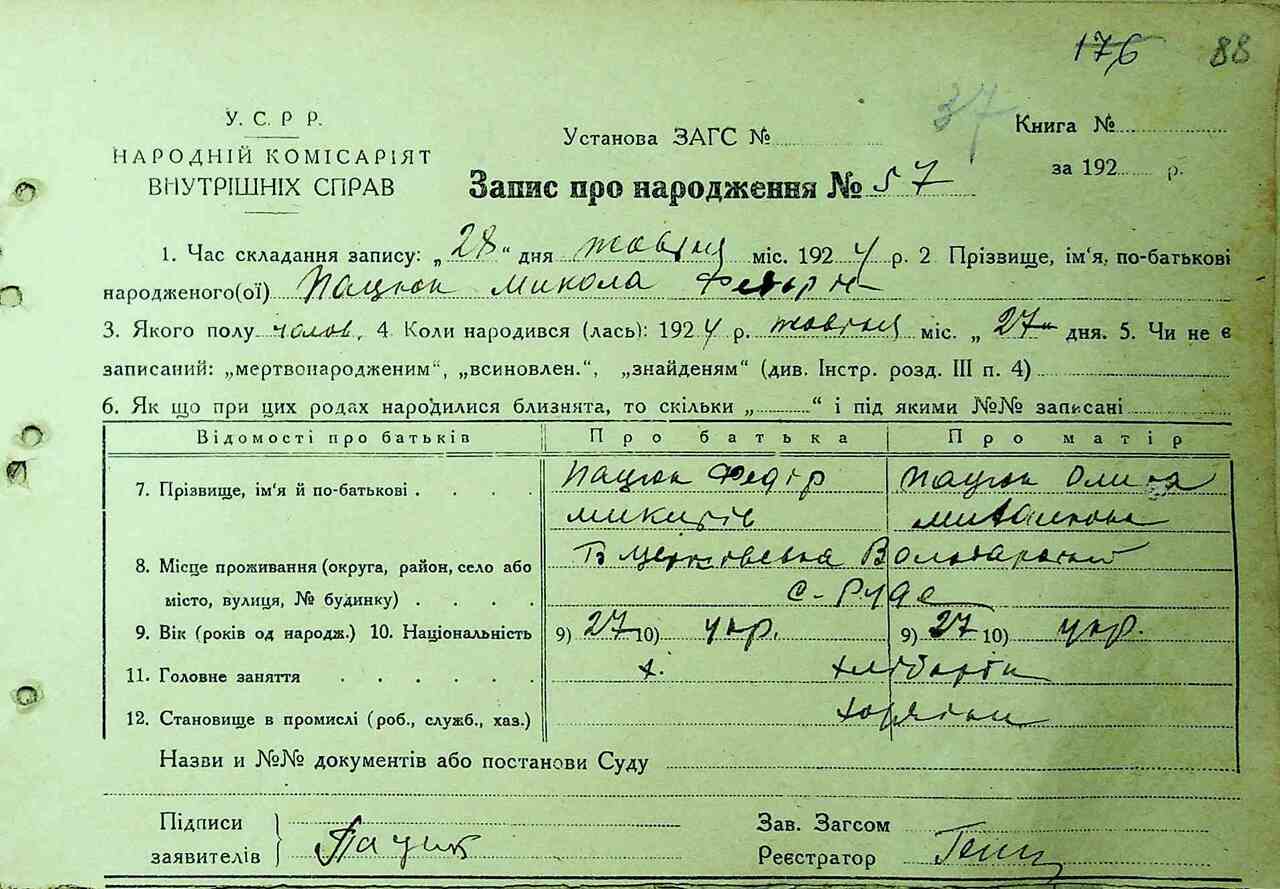 176 88
37
У. С. Р Р.
НАРОДНІЙ КОМІСАРІЯТ
ВНУТРІШНІХ СПРАВ
Установа ЗАГС №
Книга №
за 192 р.
Запис про народження № 57
1. Час складання запису: „28“ дня жовтня міс. 1924 р. 2 Прізвище, ім'я, по-батькові
народженого(ої) Пацюк Микола
3. Якого полу чолов. 4. Коли народився (лась): 1924 р. жовтня міс. „27“ дня. 5. Чи не є
записаний: „мертвонародженим“, „всиновлен.“, „знайденям“ (див. Інстр. розд. III п. 4)
6. Як що при цих родах народилися близнята, то скільки „ “ і під якими №№ записані
Відомості про батьків Про батька Про матір
7. Прізвище, ім'я й по-батькові Пацюк Федір Пацюк
8. Місце проживання (округа, район, село або Б Церковська
місто, вулиця, № будинку) с-
9. Вік (років од народж.) 10. Національність 9) 27 10) укр. 9) 27 10) укр.
11. Головне заняття х.
12. Становище в промислі (роб., служб., хаз.)
Назви и №№ документів або постанови Суду
Підписи
заявителів Пацюк
Зав. Загсом
Реєстратор